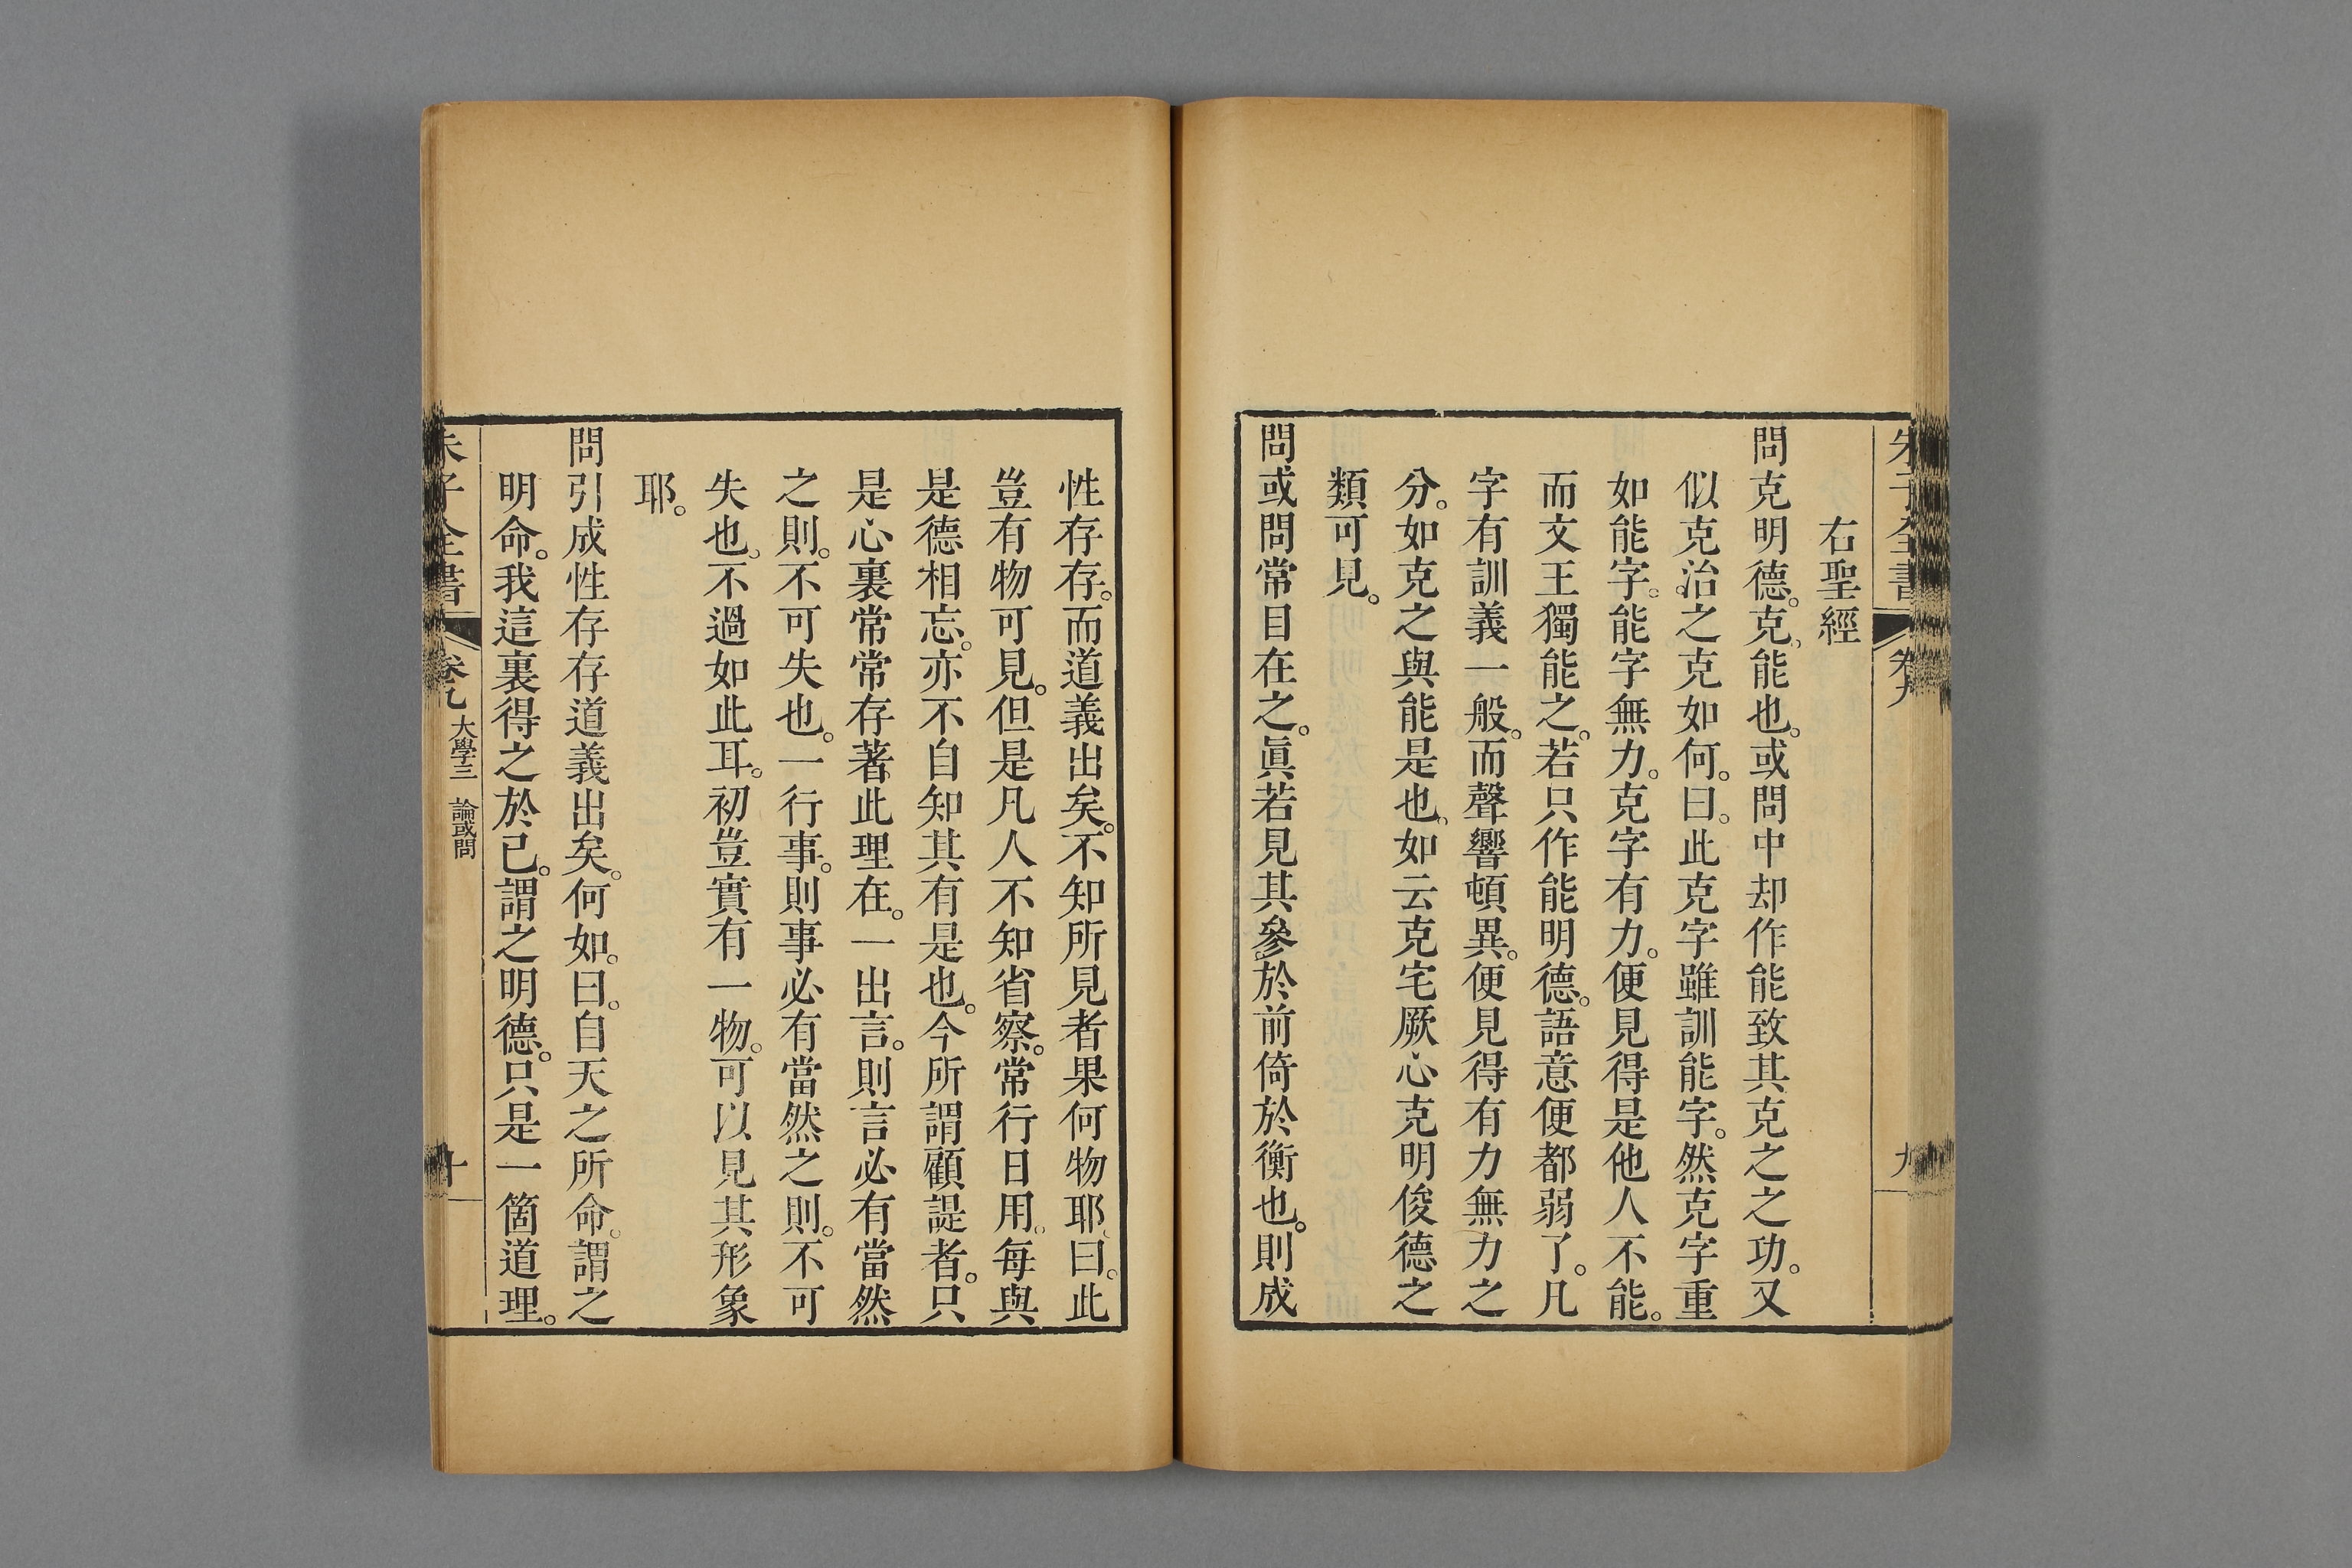 朱子全書 卷九 九
右聖經
問克明德。克、能也。或問中却作能致其克之之功。又
似克治之克如何。曰。此克字雖訓能字。然克字重
如能字。能字無力。克字有力。便見得是他人不能。
而文王獨能之。若只作能明德。語意便都弱了。凡
字有訓義一般。而聲響頓異。便見得有力無力之
分。如克之與能是也、如云克宅厥心克明俊德之
類可見。
問或問常目在之。眞若見其參於前倚於衡也。則成
性存存。而道義出矣。不知所見者果何物耶、曰。此
豈有物可見。但是凡人不知省察。常行日用。每與
是德相忘。亦不自知其有是也。今所謂顧諟者。只
是心裏常常存著此理在。一出言。則言必有當然
之則。不可失也。一行事。則事必有當然之則。不可
失也、不過如此耳。初豈實有一物。可以見其形象
耶。
問引成性存存道義出矣。何如。曰。自天之所命。謂之
明命。我這裏得之於己。謂之明德。只是一箇道理。
朱子全書 卷九 大學三 論或問 十